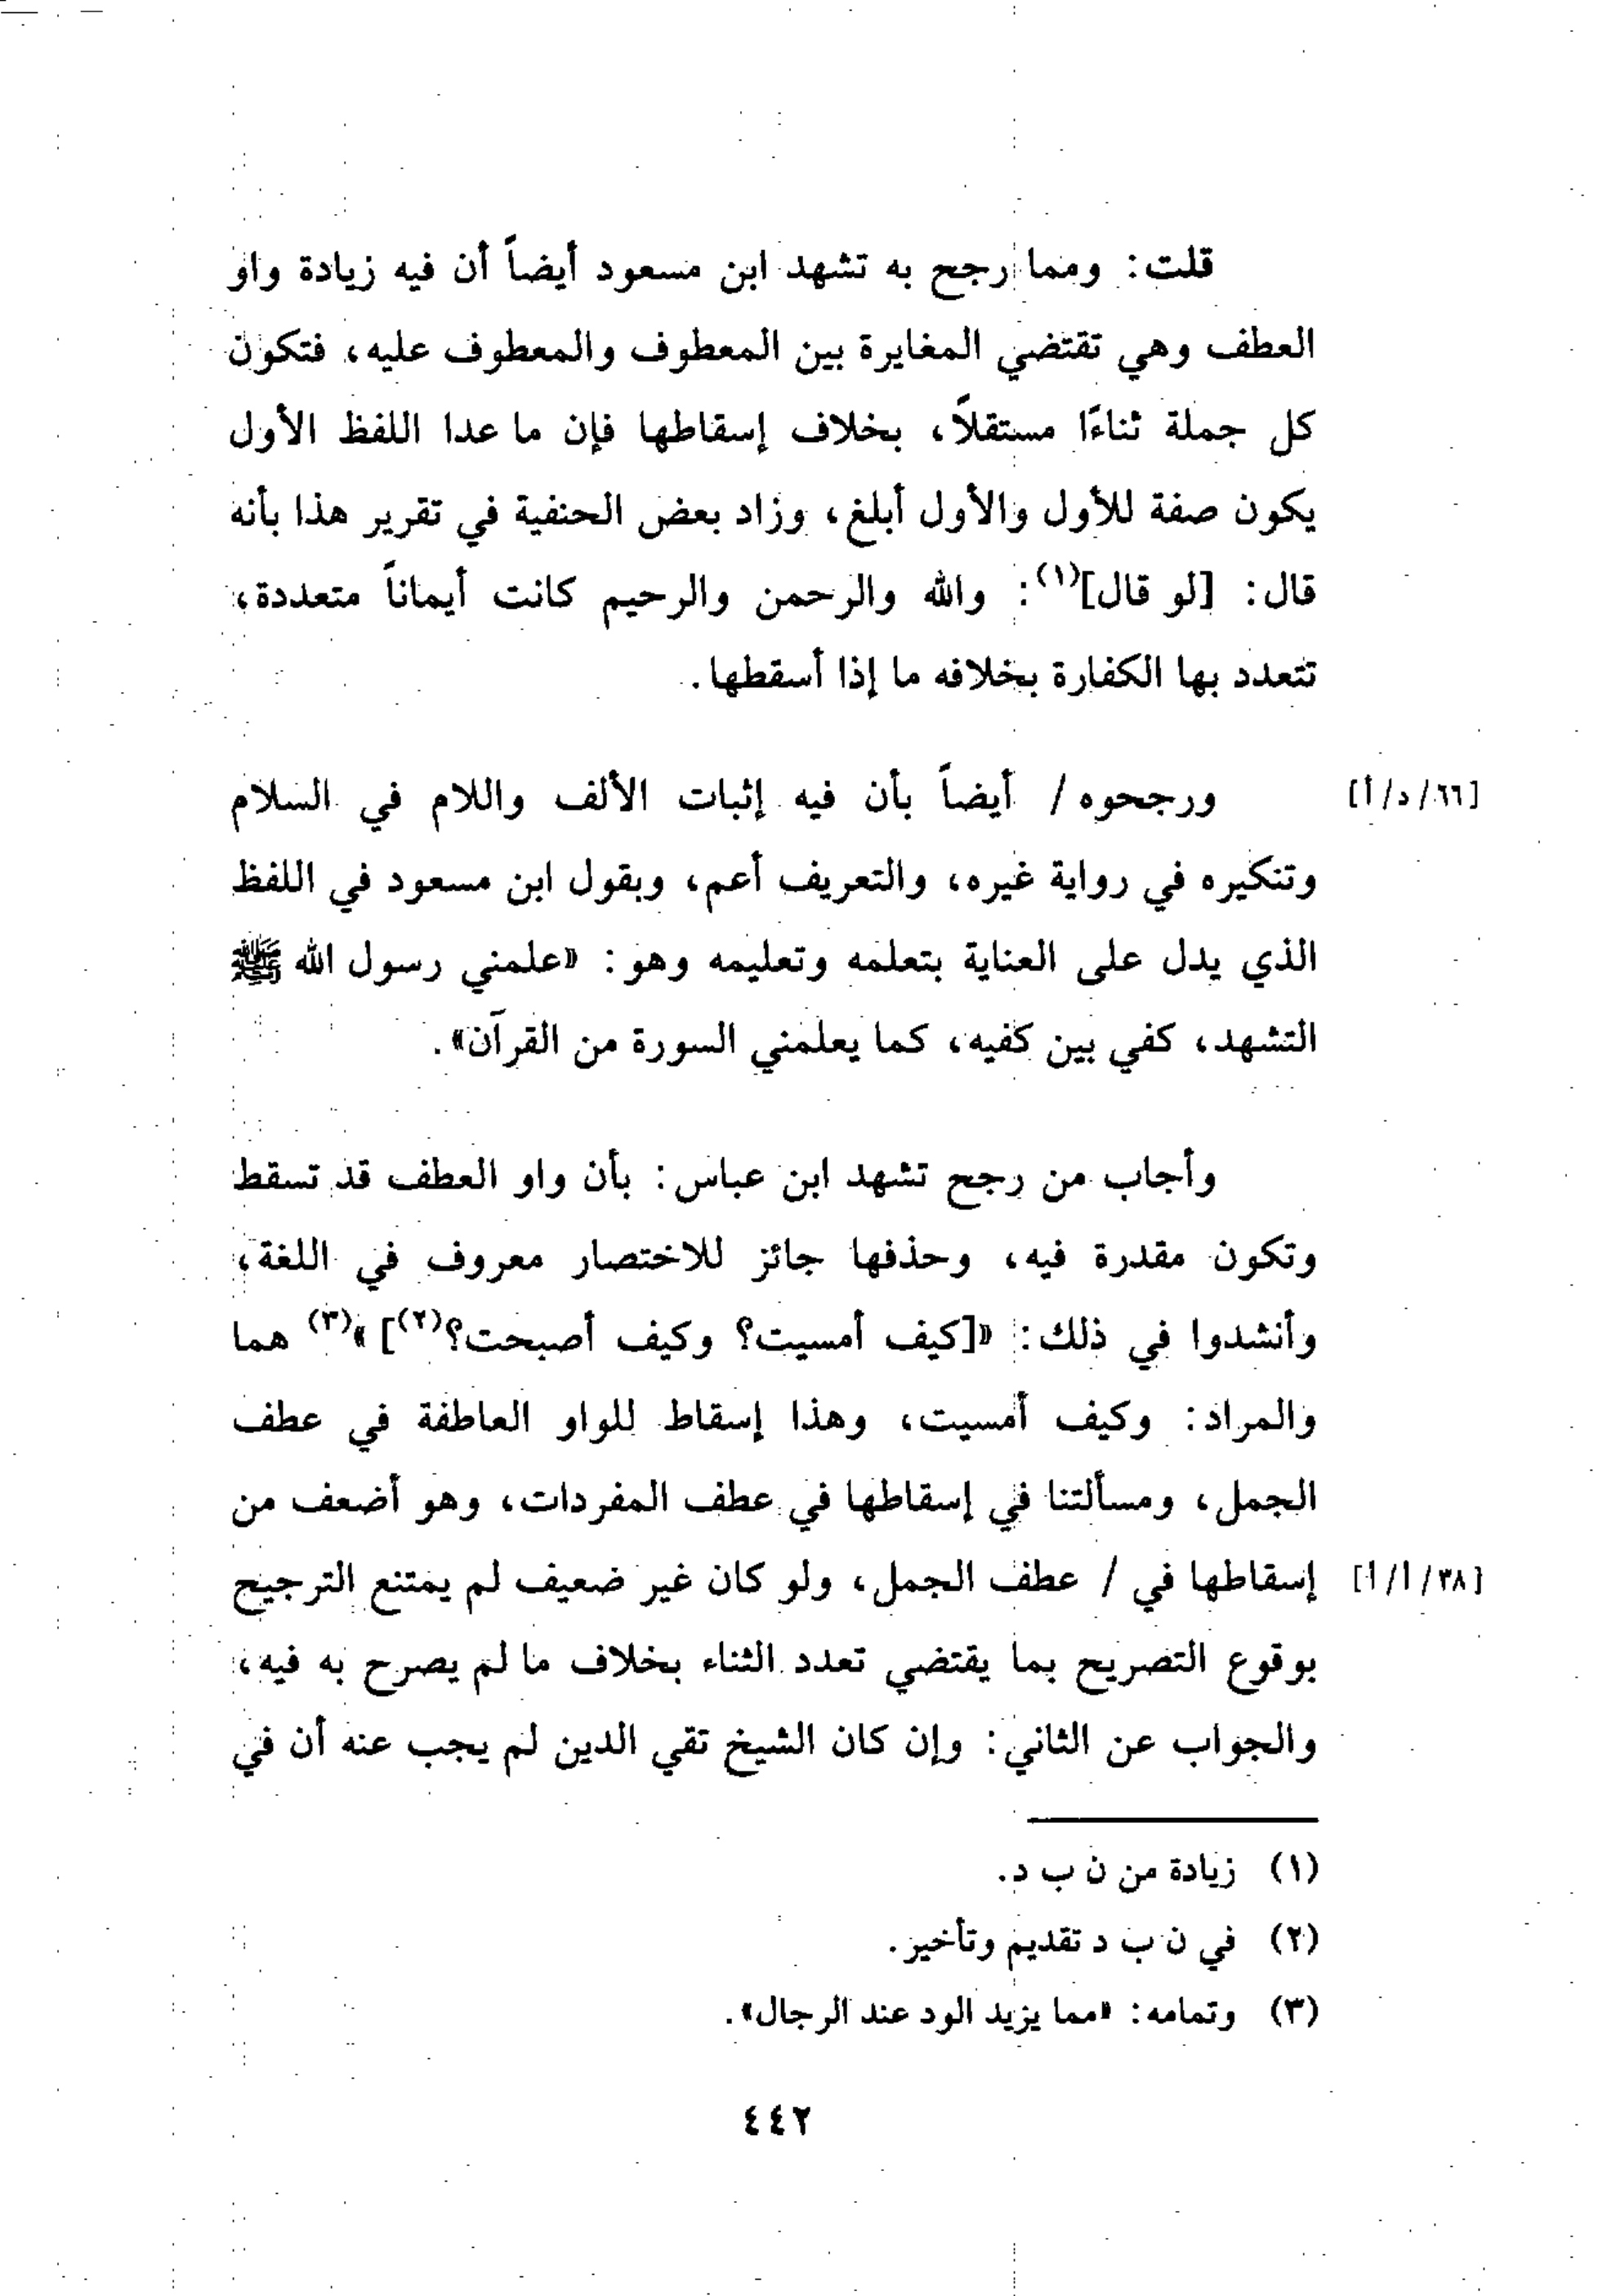 قلت: ومما رجح به تشهد ابن مسعود أيضاً أن فيه زيادة واو
العطف وهي تقتضي المغايرة بين المعطوف والمعطوف عليه، فتكون
كل جملة ثناءًا مستقلاً، بخلاف إسقاطها فإن ما عدا اللفظ الأول
يكون صفة للأول والأول أبلغ، وزاد بعض الحنفية في تقرير هذا بأنه
قال: [لو قال](١): والله والرحمن والرحيم كانت أيماناً متعددة،
تتعدد بها الكفارة بخلافه ما إذا أسقطها.
[٦٦/د/أ] ورجحوه / أيضاً بأن فيه إثبات الألف واللام في السلام
وتنكيره في رواية غيره، والتعريف أعم، وبقول ابن مسعود في اللفظ
الذي يدل على العناية بتعلمه وتعليمه وهو: «علمني رسول الله ﷺ
التشهد، كفي بين كفيه، كما يعلمني السورة من القرآن».
وأجاب من رجح تشهد ابن عباس: بأن واو العطف قد تسقط
وتكون مقدرة فيه، وحذفها جائز للاختصار معروف في اللغة،
وأنشدوا في ذلك: «[كيف أمسيت؟ وكيف أصبحت؟(٢)] »(٣) هما
والمراد: وكيف أمسيت، وهذا إسقاط للواو العاطفة في عطف
الجمل، ومسألتنا في إسقاطها في عطف المفردات، وهو أضعف من
[٣٨/أ/أ] إسقاطها في / عطف الجمل، ولو كان غير ضعيف لم يمتنع الترجيح
بوقوع التصريح بما يقتضي تعدد الثناء بخلاف ما لم يصرح به فيه،
والجواب عن الثاني: وإن كان الشيخ تقي الدين لم يجب عنه أن في
(١) زيادة من ن ب د.
(٢) في ن ب د تقديم وتأخير.
(٣) وتمامه: «مما يزيد الود عند الرجال».
٤٤٢